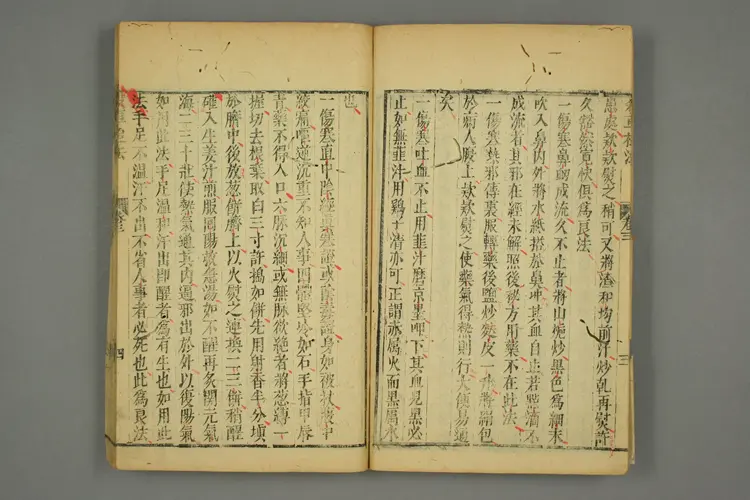 患處款款熨之稍可又將渣和均前汁炒乾再熨許
久豁然寬快俱為良法
一傷寒鼻衂成流久不止者將山梔炒黑色為細末
吹入鼻內外將水紙搭於鼻冲其血自止若點滴不
成流者其邪在經未解照後秘方用藥不在此法
一傷寒熱邪傳裏服轉藥後鹽炒麩皮一升將絹包
於病人腹上款款熨之使藥氣得熱則行大便易通
矣
一傷寒吐血不止用韭汁磨京墨呷下其血見黑必
止如無韭汁用鷄子清亦可正謂赤屬火而黑屬水
也
一傷寒直中陰經真寒證或陰毒證身如被杖腹中
絞痛嘔逆沉重不知人事四體堅冷如石手指甲唇
青藥不得入口六脉沉細或無脉欲絕者將葱縛一
握切去根葉取白三寸許搗如餅先用射香半分填
於臍中後放葱餅臍上以火熨之連換二三餅稍醒
灌入生姜汁煎服回陽救急湯如不醒再灸関元氣
海二三十壯使熱氣通其內逼邪出於外以復陽氣
如用此法手足溫和汗出即醒者為有生也如用此
法手足不溫汗不出不省人事者必死也此為良法
四